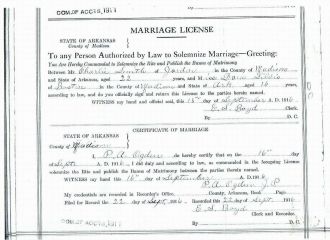 COM. OF ACCTS., 1917
MARRIAGE LICENSE
STATE OF ARKANSAS
County of Madison
To any Person Authorized by Law to Solemnize Marriage—Greeting:
You Are Hereby Commanded to Solemnize the Rites and Publish the Banns of Matrimony
Between Mr. Charlie Smith of Jordan in the County of Madison
and State of Arkansas, aged 22 years, and M iss Dora
of Boston in the County of Madison and State of Ark aged 16
years, according to law, and do you officially sign and return this License to the parties therein named.
WITNESS my hand and official seal, this 15 day of September A. D. 1916
C. S. Boyd
By D. C.
STATE OF ARKANSAS
County of Madison
CERTIFICATE OF MARRIAGE
I, P. A. Ogden do hereby certify that on the 16th day
of Sept A. D. 1916, I did duly and according to law, as commanded in the foregoing License
solemnize the Rites and publish the Banns of Matrimony between the parties therein named.
WITNESS my hand this 16th day of September 1916
P. A. Ogden J. P.
My credentials are recorded in Recorder's Office, County, Arkansas, Book Page
Filed for Record the 22 day of Sept. 1916. Recorded this 22 day of Sept. 1916
C. S. Boyd
Clerk and Recorder.
By D. C.
COM. OF ACCTS., 1917